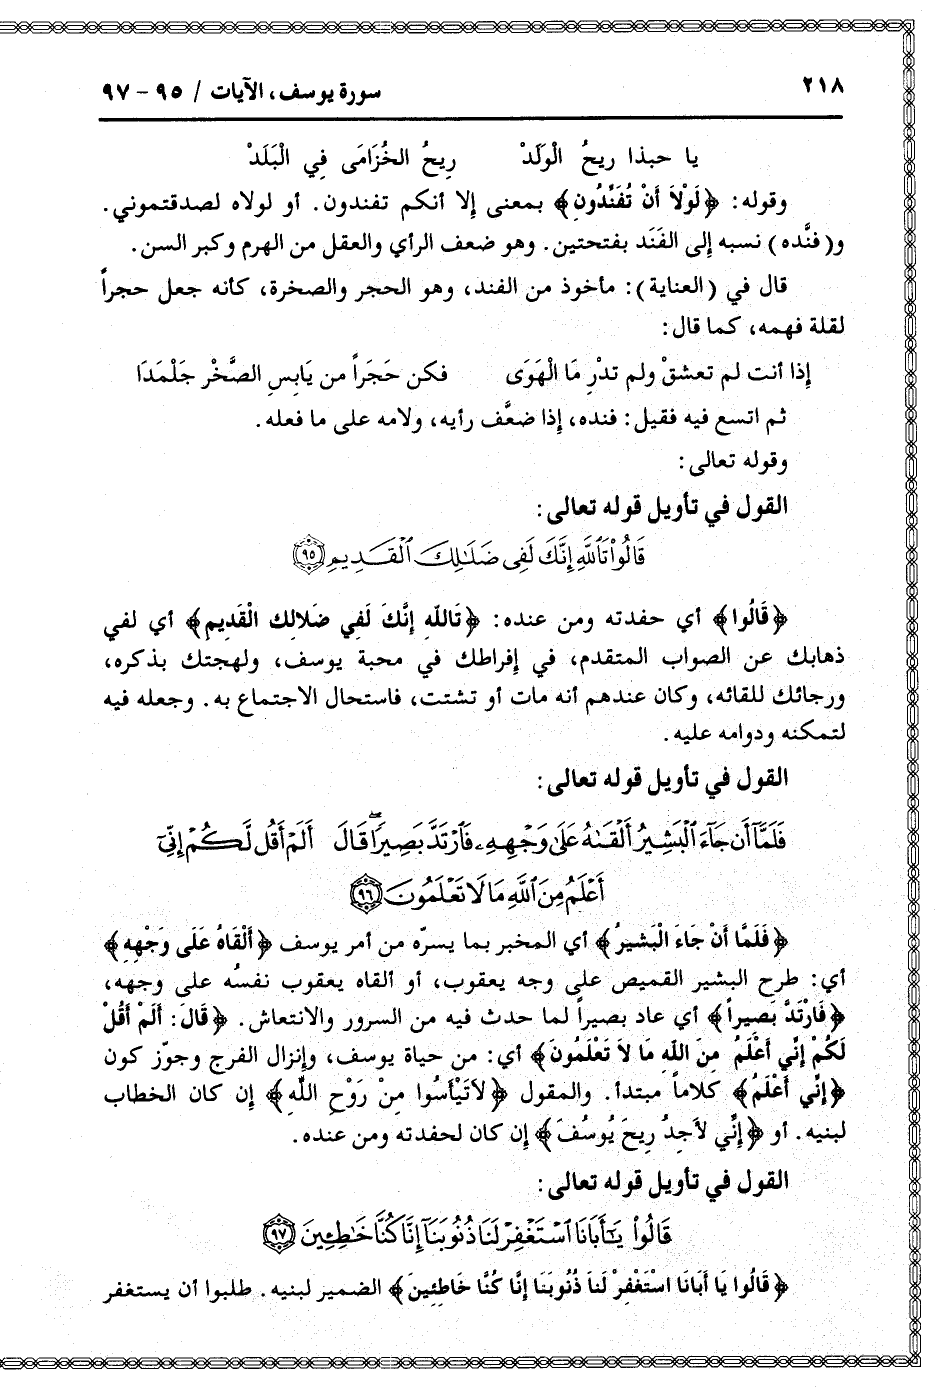 ٢١٨ سورة يوسف، الآيات / ٩٥ - ٩٧
يا حبذا ريحُ الْوَلَدْ ريحُ الخُزَامَى فِي الْبَلَدْ
وقوله: ﴿لَوْلاَ أَنْ تُفَنِّدُونِ﴾ بمعنى إلا أنكم تفندون. أو لولاه لصدقتموني.
و(فنَّده) نسبه إلى الفَنَد بفتحتين. وهو ضعف الرأي والعقل من الهرم وكبر السن.
قال في (العناية): مأخوذ من الفند، وهو الحجر والصخرة، كأنه جعل حجراً
لقلة فهمه، كما قال:
إذا أنت لم تعشقْ ولم تدْرِ مَا الْهَوَى فكن حَجَراً من يَابِسِ الصَّخْر جَلْمَدَا
ثم اتسع فيه فقيل: فنده، إذا ضعَّف رأيه، ولامه على ما فعله.
وقوله تعالى:
القول في تأويل قوله تعالى:
قَالُواْ تَاللَّهِ إِنَّكَ لَفِي ضَلَٰلِكَ ٱلْقَدِيمِ ٩٥
﴿قَالُوا﴾ أي حفدته ومن عنده: ﴿تَاللّه إِنَّكَ لَفِي ضَلالك الْقَديم﴾ أي لفي
ذهابك عن الصواب المتقدم، في إفراطك في محبة يوسف، ولهجتك بذكره،
ورجائك للقائه، وكان عندهم أنه مات أو تشتت، فاستحال الاجتماع به. وجعله فيه
لتمكنه ودوامه عليه.
القول في تأويل قوله تعالى:
فَلَمَّآ أَن جَآءَ ٱلْبَشِيرُ أَلْقَىٰهُ عَلَىٰ وَجْهِهِۦ فَٱرْتَدَّ بَصِيرًا قَالَ أَلَمْ أَقُل لَّكُمْ إِنِّيٓ
أَعْلَمُ مِنَ ٱللَّهِ مَا لَا تَعْلَمُونَ ٩٦
﴿فَلَمَّا أَنْ جَاءَ الْبَشيرُ﴾ أي المخبر بما يسرّه من أمر يوسف ﴿أَلْقَاهُ عَلَى وَجْهِهِ﴾
أي: طرح البشير القميص على وجه يعقوب، أو ألقاه يعقوب نفسُه على وجهه،
﴿فَارْتَدَّ بَصيراً﴾ أي عاد بصيراً لما حدث فيه من السرور والانتعاش. ﴿قَالَ: أَلَمْ أَقُلْ
لَكُمْ إِنِّي أَعْلَمُ مِنَ اللّه مَا لاَ تَعْلَمُونَ﴾ أي: من حياة يوسف، وإنزال الفرج وجوّز كون
﴿إِنِّي أَعْلَمُ﴾ كلاماً مبتدأ. والمقول ﴿لاَتَيْأَسُوا مِنْ رَوْحِ اللّهِ﴾ إن كان الخطاب
لبنيه. أو ﴿إِنِّي لأَجِدُ رِيحَ يُوسُفَ﴾ إن كان لحفدته ومن عنده.
القول في تأويل قوله تعالى:
قَالُواْ يَٰٓأَبَانَا ٱسْتَغْفِرْ لَنَا ذُنُوبَنَآ إِنَّا كُنَّا خَٰطِـِٔينَ ٩٧
﴿قَالُوا يَا أَبَانَا اسْتَغْفِرْ لَنَا ذُنُوبَنَا إِنَّا كُنَّا خَاطِئِينَ﴾ الضمير لبنيه. طلبوا أن يستغفر